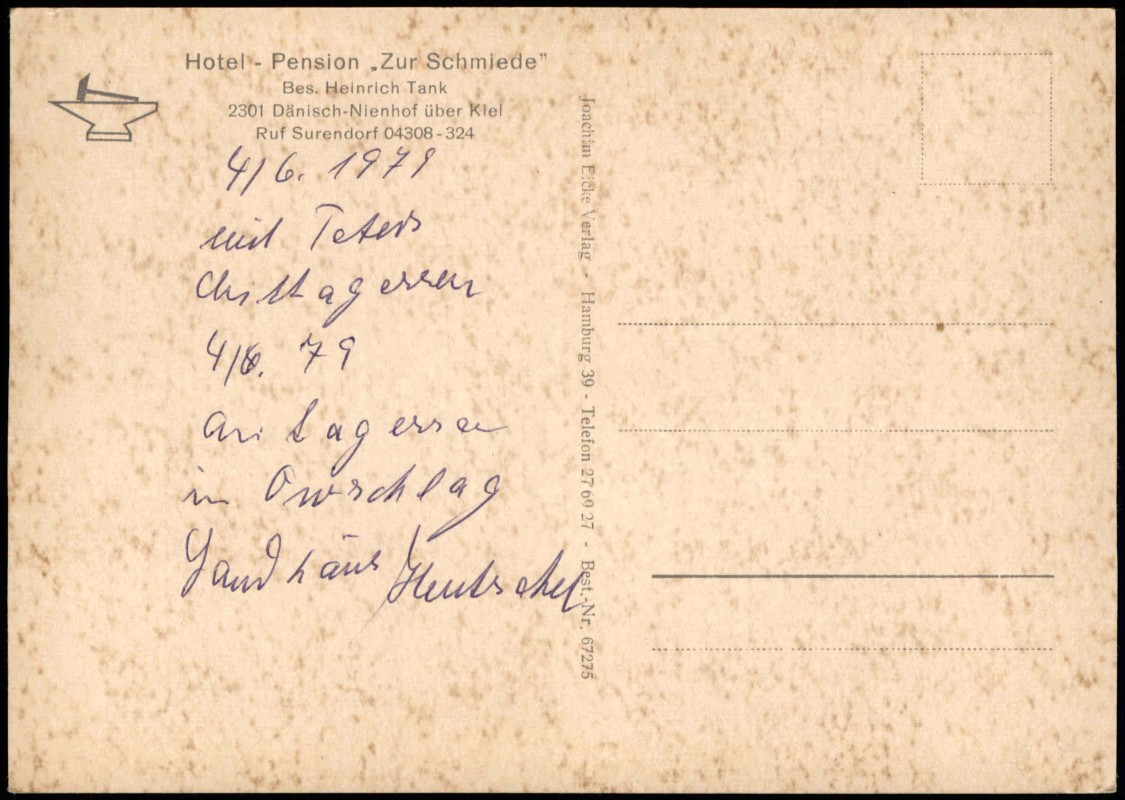 Hotel - Pension „Zur Schmiede"
Bes. Heinrich Tank
2301 Dänisch-Nienhof über Kiel
Ruf Surendorf 04308-324
4/6. 1979
mit
4/6. 79
in Owschlag
Landhaus Hentschel
Joachim Eicke Verlag - Hamburg 39 - Telefon 27 69 27 - Best.-Nr. 67275